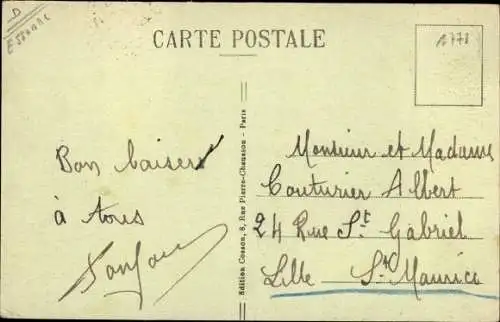 D
ESSONNE
CARTE POSTALE
1778
Bon baiser
à tous
Edition Cosson, 8, Rue Pierre-Chausson - Paris
Monsieur et Madame
Couturier Albert
24 Rue St Gabriel
Lille St Maurice